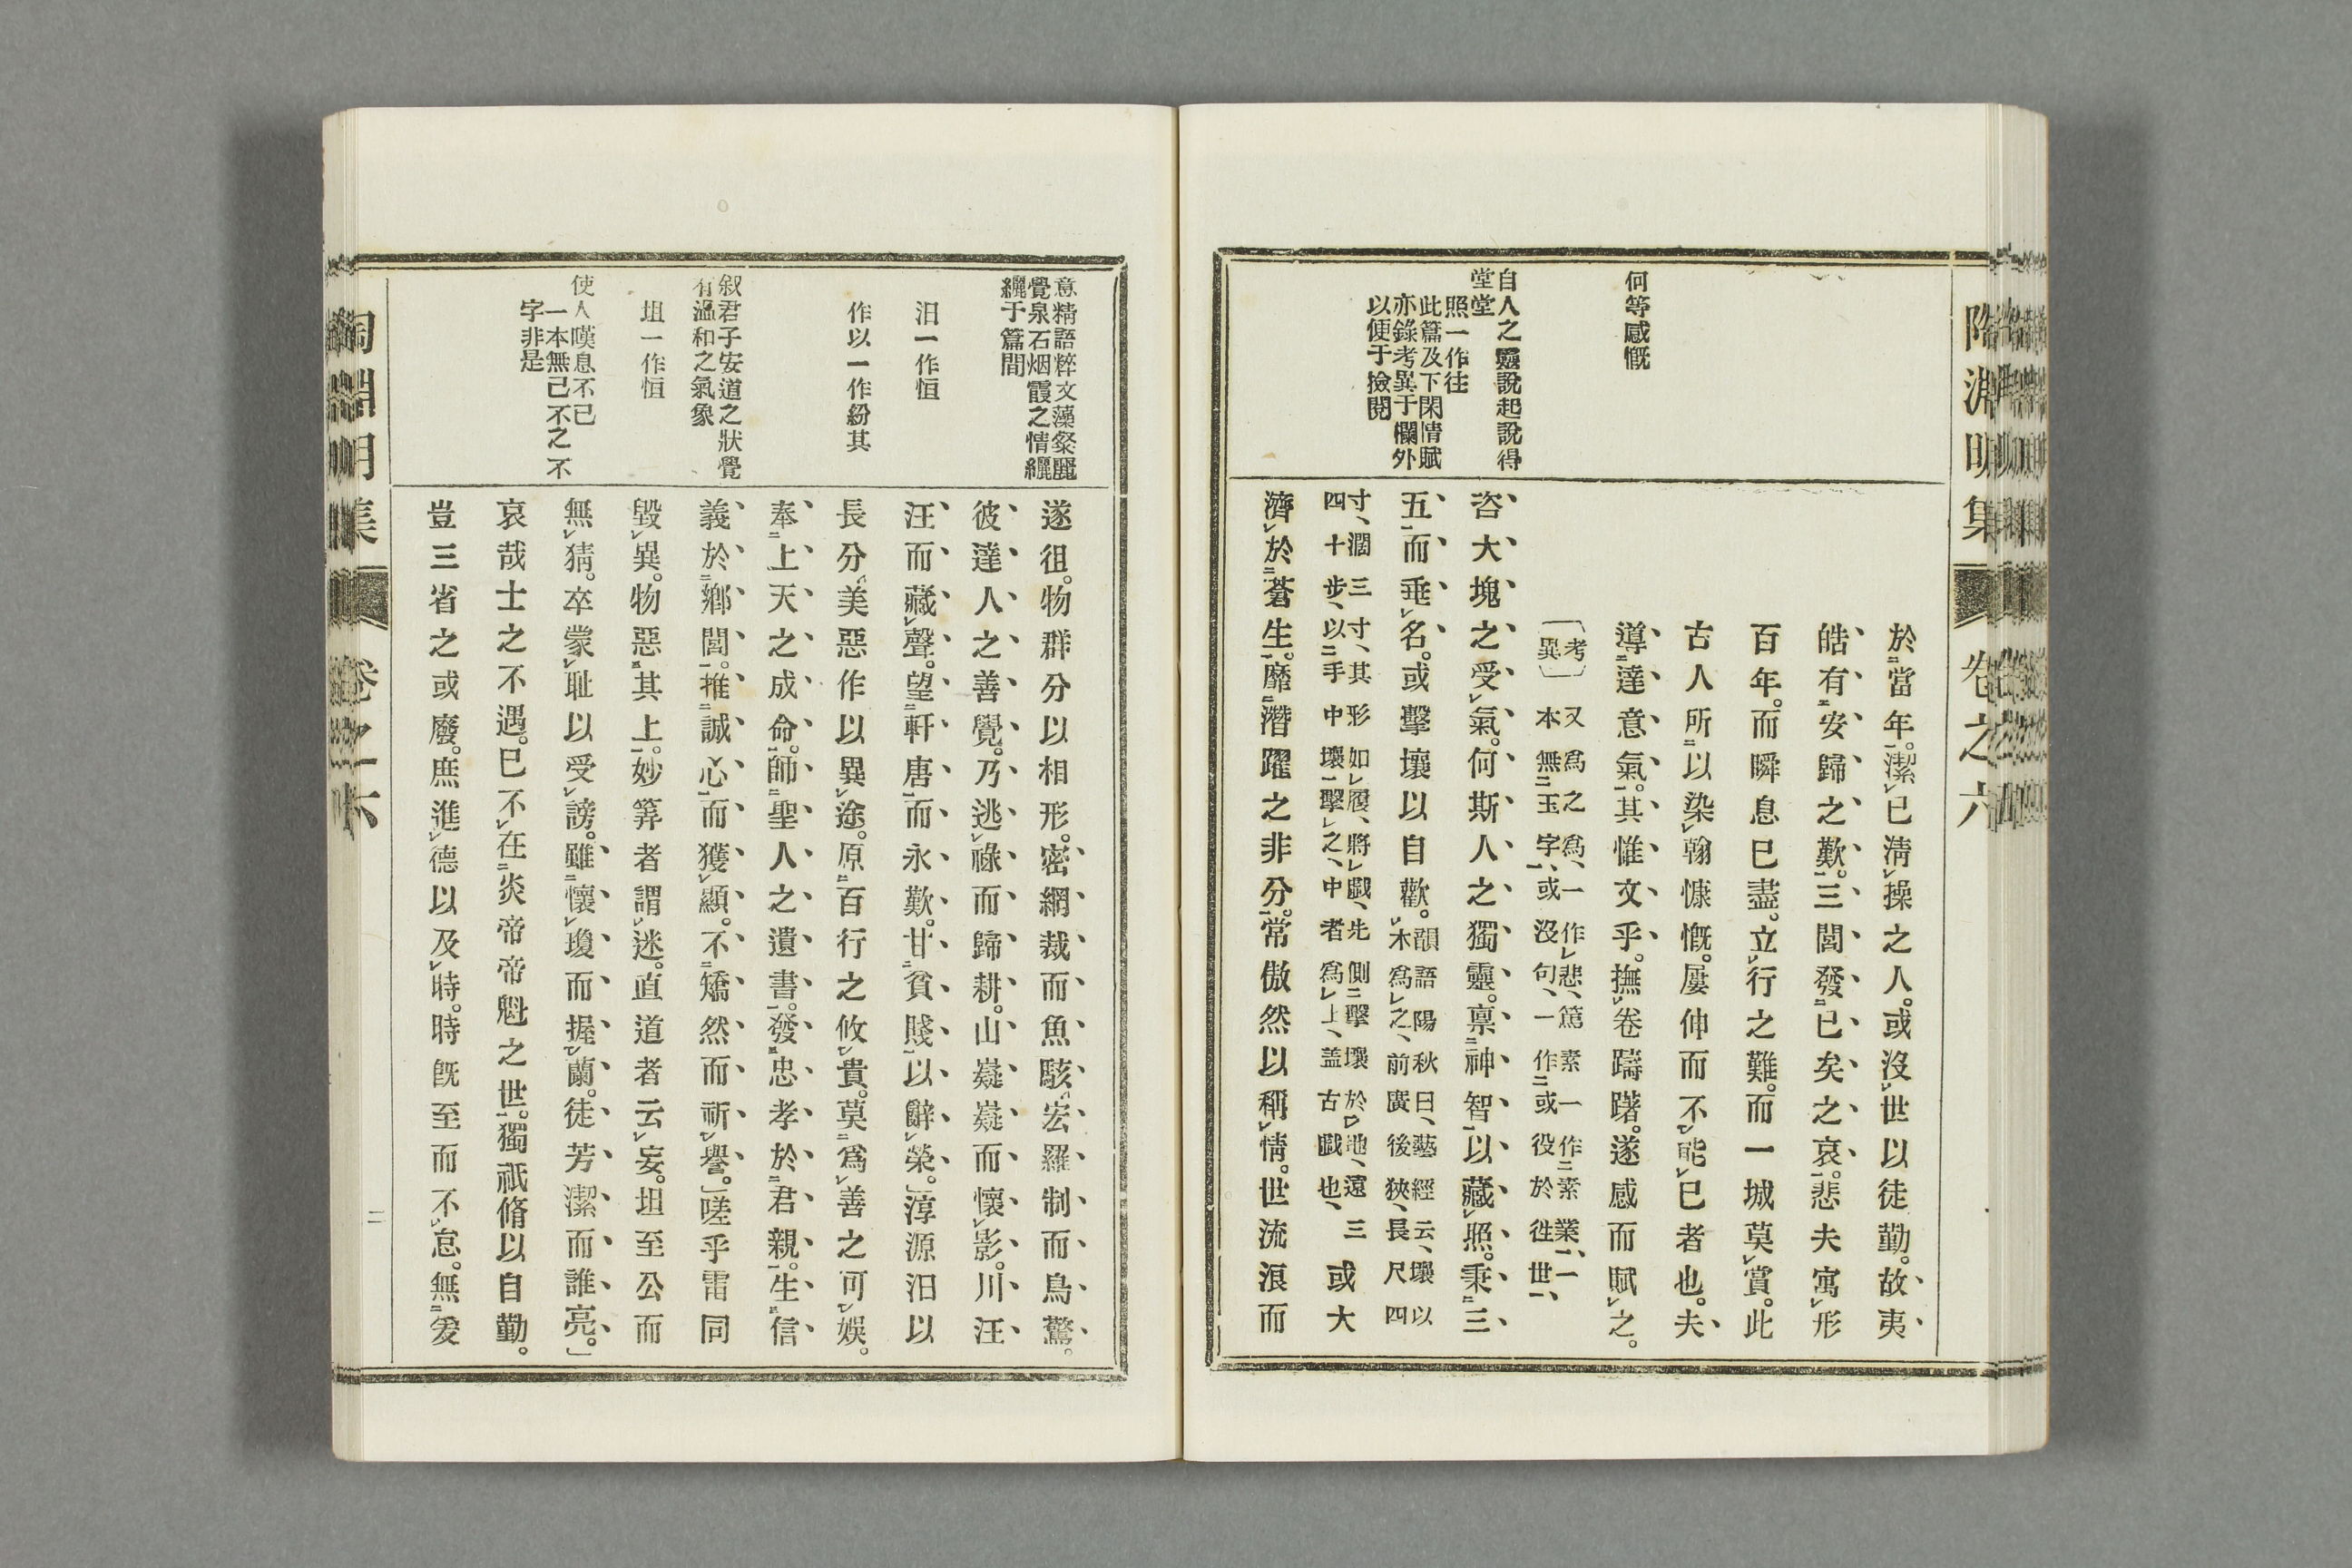 陶淵明集 卷之六
何等感慨
自人之靈說起說得
堂堂
照一作往
此篇及下閑情賦
亦錄考異于欄外
以便于撿閱
於當年。潔已淸操之人。或沒世以徒勤。故夷
皓有安歸之歎。三閭發已矣之哀。悲夫寓形
百年。而瞬息已盡。立行之難。而一城莫賞。此
古人所以染翰慷慨。屢伸而不能已者也。夫
導達意氣。其惟文乎。撫卷躊躇。遂感而賦之。
〔考異〕又爲之爲、一作悲、篤素一作素業、一
本無玉字、或沒句、一作或役於徃世、
咨大塊之受氣。何斯人之獨靈。禀神智以藏照。秉三
五而垂名。或擊壤以自歡。韻語陽秋曰、藝經云、壤以
木爲之、前廣後狹、長尺四
寸、濶三寸、其形如履、將戲、先側擊壤於地、遠三
四十步、以手中壤擊之、中者爲上、盖古戲也、
或大
濟於蒼生。靡潛躍之非分。常傲然以稱情。世流浪而
意精語粹文藻粲麗
覺泉石烟霞之情纒
纒于篇間
汨一作恒
作以一作紛其
叙君子安道之狀覺
有溫和之氣象
坦一作恒
使人嘆息不已
一本無已不之不
字非是
遂徂。物群分以相形。密網裁而魚駭。宏羅制而鳥驚。
彼達人之善覺。乃逃祿而歸耕。山嶷嶷而懷影。川汪
汪而藏聲。望軒唐而永歎。甘貧賤以辭榮。」淳源汨以
長分。美惡作以異途。原百行之攸貴。莫爲善之可娛。
奉上天之成命。師聖人之遺書。發忠孝於君親。生信
義於鄉閭。推誠心而獲顯。不矯然而祈譽。」嗟乎雷同
毀異。物惡其上。妙筭者謂迷。直道者云妄。坦至公而
無猜。卒蒙耻以受謗。雖懷瓊而握蘭。徒芳潔而誰亮。」
哀哉士之不遇。已不在炎帝帝魁之世。獨祗脩以自勤。
豈三省之或廢。庶進德以及時。時旣至而不怠。無爰
陶淵明集 卷之六 二